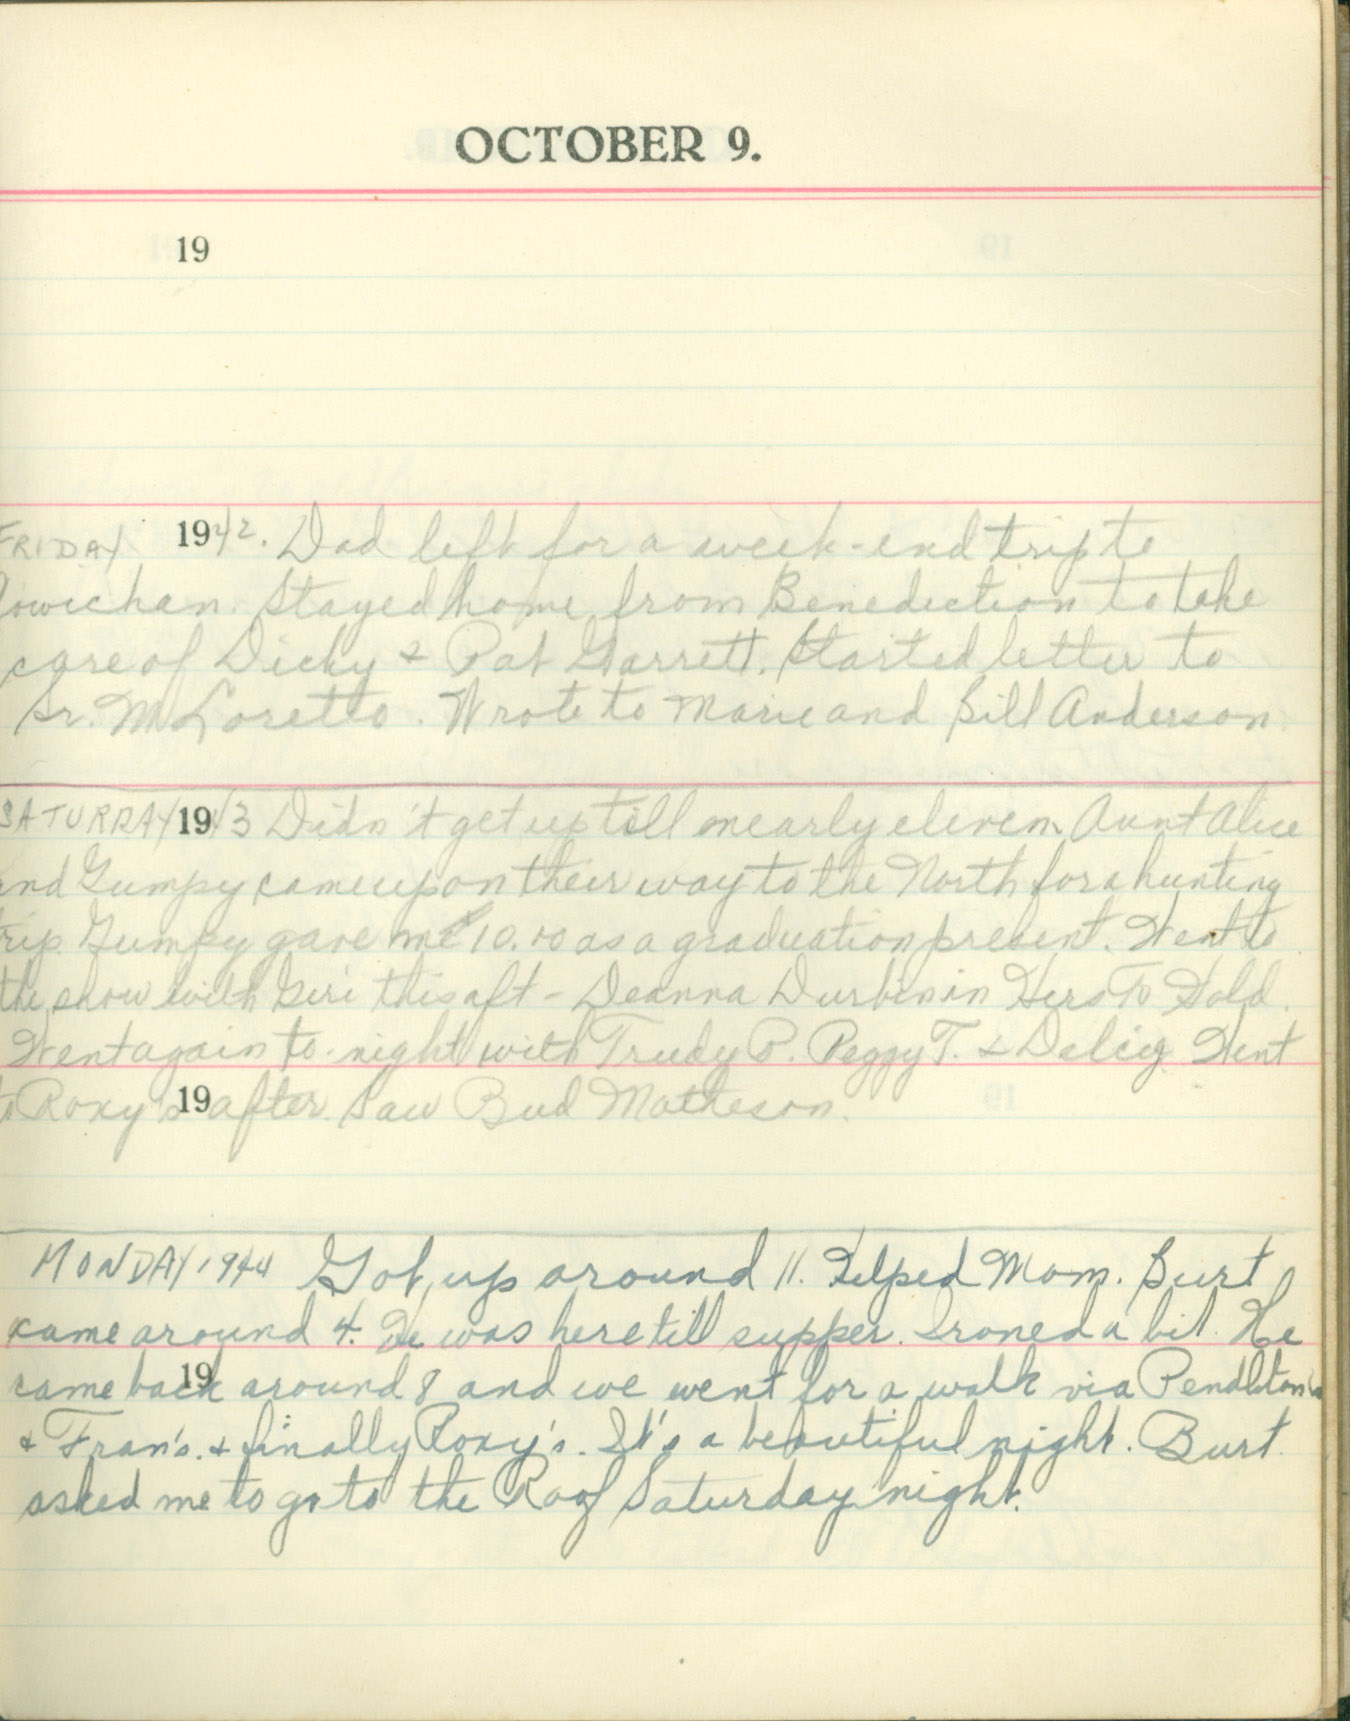 OCTOBER 9.
19
FRIDAY 1942. Dad left for a week-end trip to
Cowichan. Stayed home from Benediction to take
care of Dicky & Pat Garrett. Started letter to
Sr. M Loretto. Wrote to Marie and Bill Anderson.
SATURDAY 1943 Didn't get up till nearly eleven. Aunt Alice
and Gumpy came up on their way to the North for a hunting
trip. Gumpy gave me 10.00 as a graduation present. Went to
the show with Geri this aft - Deanna Durbin in Hers To Hold.
Went again to-night with Trudy P. Peggy T. & Went
to Roxy's after. Saw Bud Matheson.
19
MONDAY 1944 Got up around 11. Helped Mom. Burt
came around 4. He was here till supper. Ironed a bit. He
came back around 8 and we went for a walk via Pendleton's
19
& Fran's. & finally Roxy's. It's a beautiful night. Burt
asked me to go to the Roof Saturday night.